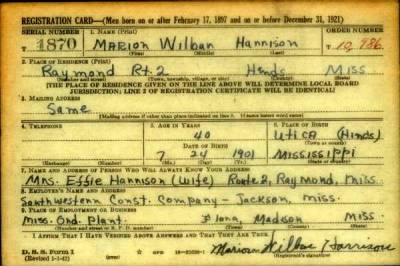 REGISTRATION CARD—(Men born on or after February 17, 1897 and on or before December 31, 1921)
SERIAL NUMBER 1. NAME (Print) ORDER NUMBER
T 1870 Marion Wilban Harrison T 10,986
2. PLACE OF RESIDENCE (Print)
Raymond Rt. 2 Hinds Miss
(Town, township, village, or city) (County) (State)
[THE PLACE OF RESIDENCE GIVEN ON THE LINE ABOVE WILL DETERMINE LOCAL BOARD
JURISDICTION; LINE 2 OF REGISTRATION CERTIFICATE WILL BE IDENTICAL]
3. MAILING ADDRESS
Same
[Mailing address if other than place indicated on line 2. If same insert word same]
4. TELEPHONE 5. AGE IN YEARS 6. PLACE OF BIRTH
40 Utica (Hinds)
DATE OF BIRTH (Town or county)
7 24 1901 Mississippi
(Exchange) (Number) (Mo.) (Day) (Yr.) (State or country)
7. NAME AND ADDRESS OF PERSON WHO WILL ALWAYS KNOW YOUR ADDRESS
Mrs. Effie Harrison (wife) Route 2, Raymond, Miss.
8. EMPLOYER'S NAME AND ADDRESS
Southwestern Const. Company - Jackson, Miss.
9. PLACE OF EMPLOYMENT OR BUSINESS
Miss. Ord. Plant. Flora, Madison Miss.
(Number and street or R. F. D. number) (Town) (County) (State)
I AFFIRM THAT I HAVE VERIFIED ABOVE ANSWERS AND THAT THEY ARE TRUE.
D. S. S. Form 1 Marion Wilban Harrison
(Revised 1-1-42) (over) (Registrant's signature)